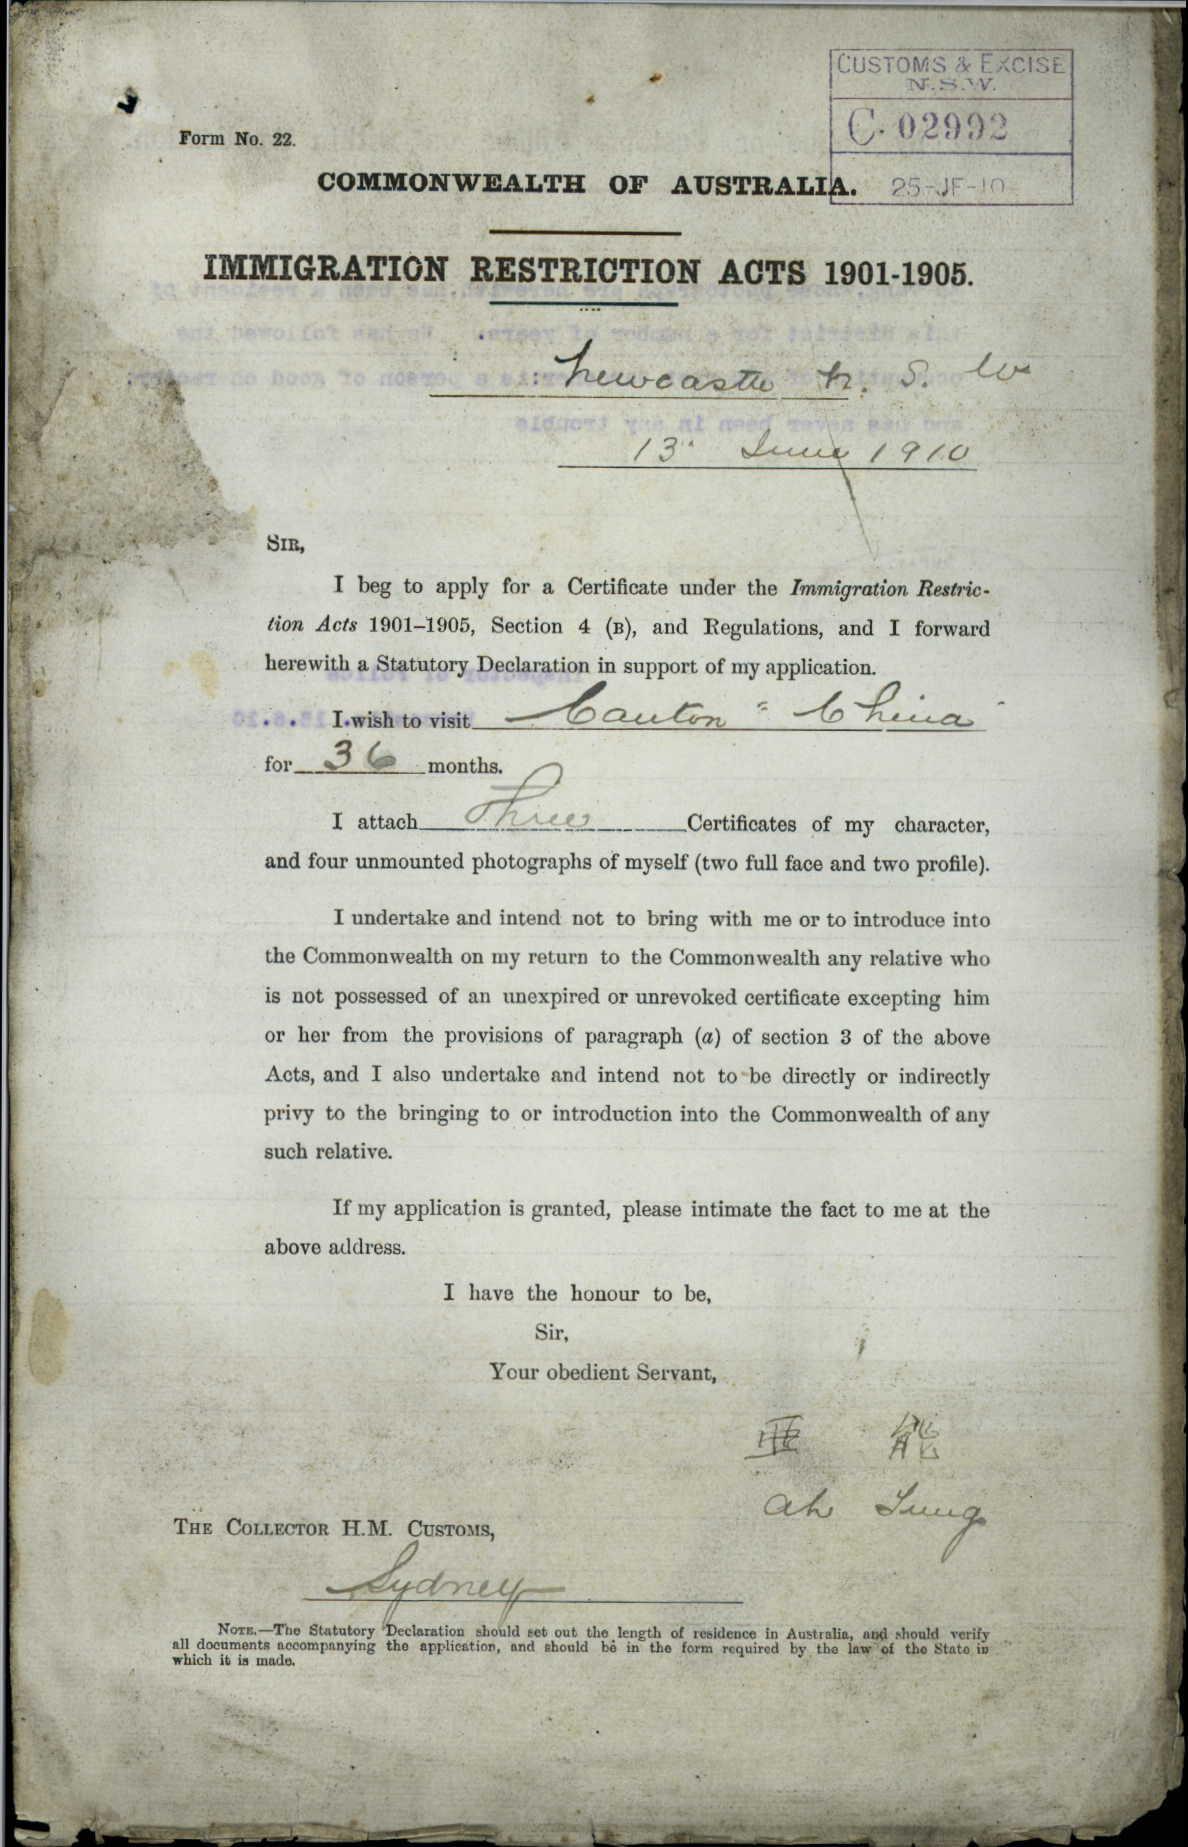 CUSTOMS & EXCISE
N.S.W.
C. 02992
25-JE-10
Form No. 22.
COMMONWEALTH OF AUSTRALIA.
IMMIGRATION RESTRICTION ACTS 1901-1905.
Newcastle N. S. W
13" June 1910
SIR,
I beg to apply for a Certificate under the Immigration Restric-
tion Acts 1901–1905, Section 4 (B), and Regulations, and I forward
herewith a Statutory Declaration in support of my application.
I wish to visit Canton " China "
for 36 months.
I attach Three Certificates of my character,
and four unmounted photographs of myself (two full face and two profile).
I undertake and intend not to bring with me or to introduce into
the Commonwealth on my return to the Commonwealth any relative who
is not possessed of an unexpired or unrevoked certificate excepting him
or her from the provisions of paragraph (a) of section 3 of the above
Acts, and I also undertake and intend not to be directly or indirectly
privy to the bringing to or introduction into the Commonwealth of any
such relative.
If my application is granted, please intimate the fact to me at the
above address.
I have the honour to be,
Sir,
Your obedient Servant,
Ah
THE COLLECTOR H.M. CUSTOMS,
Sydney
NOTE.—The Statutory Declaration should set out the length of residence in Australia, and should verify
all documents accompanying the application, and should be in the form required by the law of the State in
which it is made.